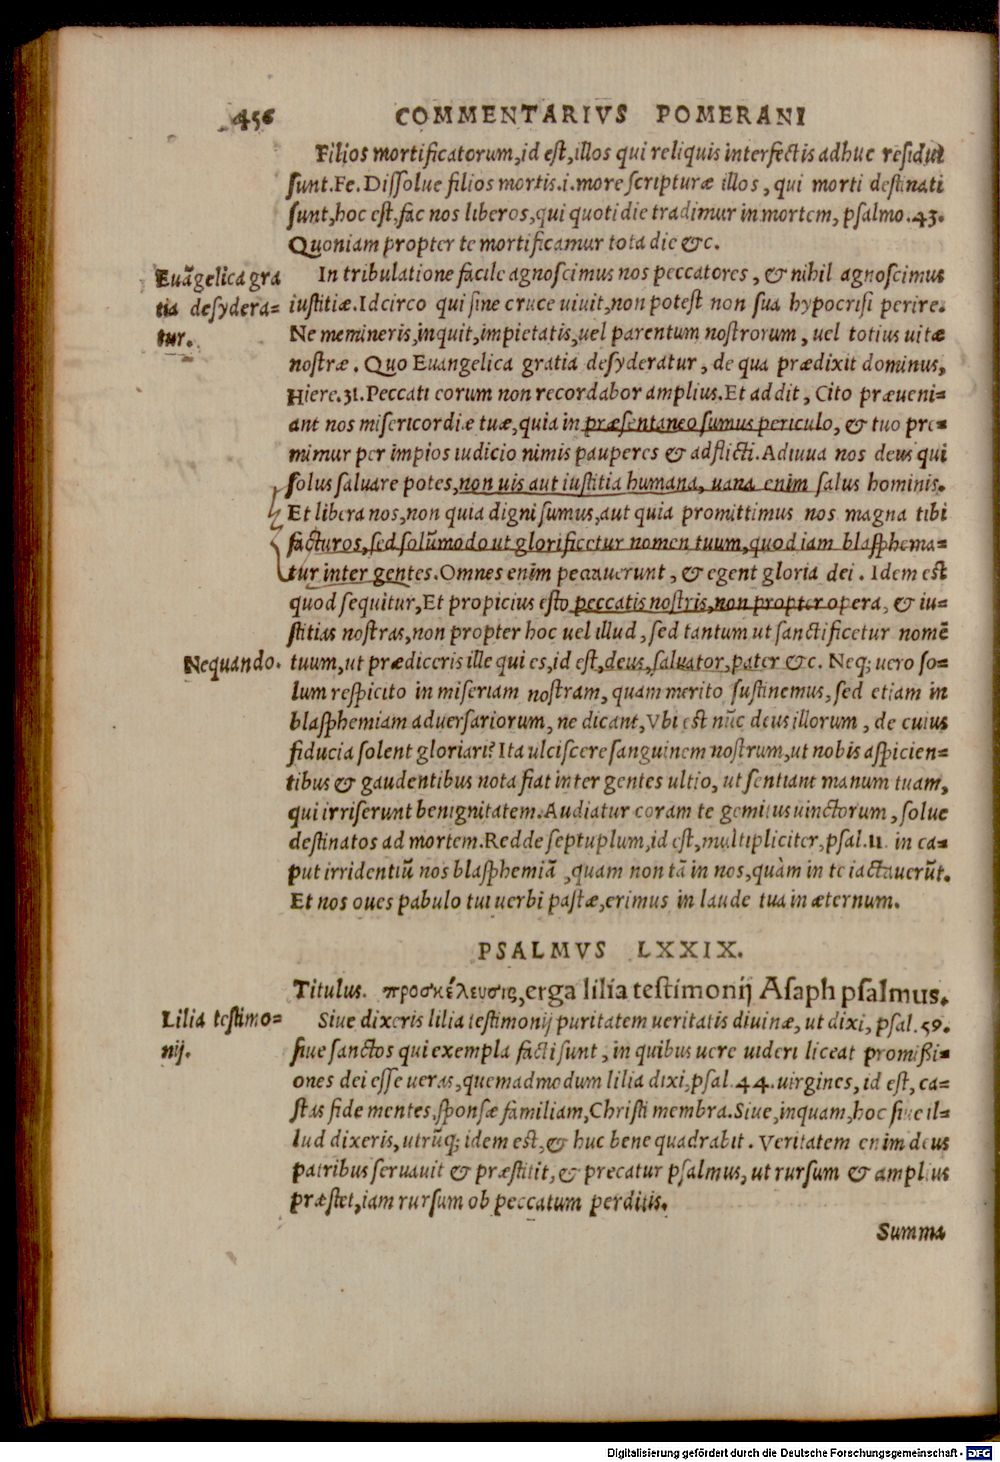 456 COMMENTARIVS POMERANI
Filios mortificatorum, id est, illos qui reliquis interfectis adhuc residui
sunt. Fe. Dissolue filios mortis .i. more scripturæ illos, qui morti destinati
sunt, hoc est, fac nos liberos, qui quotidie tradimur in mortem, psalmo .43.
Quoniam propter te mortificamur tota die &c.
Euãgelica gra
tia desydera=
tur.
In tribulatione facile agnoscimus nos peccatores, & nihil agnoscimus
iustitiæ. Idcirco qui sine cruce uiuit, non potest non sua hypocrisi perire.
Ne memineris, inquit, impietatis, uel parentum nostrorum, uel totius uitæ
nostræ. Quo Euangelica gratia desyderatur, de qua prædixit dominus,
Hiere. 31. Peccati eorum non recordabor amplius. Et addit, Cito præueni=
ant nos misericordiæ tuæ, quia in præsentaneo sumus periculo, & tuo pre=
mimur per impios iudicio nimis pauperes & adflicti. Adiuua nos deus qui
solus saluare potes, non uis aut iustitia humana, uana enim salus hominis.
Et libera nos, non quia digni sumus, aut quia promittimus nos magna tibi
facturos, sed solũmodo ut glorificetur nomen tuum, quod iam blasphema=
tur inter gentes. Omnes enim peccauerunt, & egent gloria dei. Idem est
quod sequitur, Et propicius esto peccatis nostris, non propter opera, & iu=
stitias nostras, non propter hoc uel illud, sed tantum ut sanctificetur nomẽ
Nequando. tuum, ut prædiceris ille qui es, id est, deus, saluator, pater &c. Neq; uero so=
lum respicito in miseriam nostram, quam merito sustinemus, sed etiam in
blasphemiam aduersariorum, ne dicant, Vbi est nũc deus illorum, de cuius
fiducia solent gloriari? Ita ulciscere sanguinem nostrum, ut nobis aspicien=
tibus & gaudentibus nota fiat inter gentes ultio, ut sentiant manum tuam,
qui irriserunt benignitatem. Audiatur coram te gemitus uinctorum, solue
destinatos ad mortem. Redde septuplum, id est, multipliciter, psal. 11. in ca=
put irridentiũ nos blasphemiã, quam non tã in nos, quàm in te iactauerũt.
Et nos oues pabulo tui uerbi pastæ, erimus in laude tua in æternum.
PSALMVS LXXIX.
Titulus. προσκέλευσις, erga lilia testimonij Asaph psalmus.
Lilia testimo=
nij.
Siue dixeris lilia testimonij puritatem ueritatis diuinæ, ut dixi, psal. 59.
siue sanctos qui exempla facti sunt, in quibus uere uideri liceat promißi=
ones dei esse ueras, quemadmodum lilia dixi, psal. 44. uirgines, id est, ca=
stas fide mentes, sponsæ familiam, Christi membra. Siue, inquam, hoc siue il=
lud dixeris, utrũq; idem est, & huc bene quadrabit. Veritatem enim deus
patribus seruauit & præstitit, & precatur psalmus, ut rursum & amplius
præstet, iam rursum ob peccatum perditis.
Summa
Digitalisierung gefördert durch die Deutsche Forschungsgemeinschaft - DFG